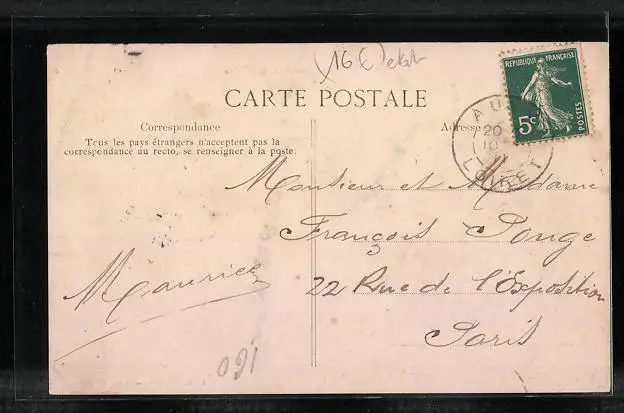 16 €
CARTE POSTALE
RÉPUBLIQUE FRANÇAISE
5c
POSTES
Correspondance
Tous les pays étrangers n'acceptent pas la
correspondance au recto, se renseigner à la poste.
Adresse
20
LOIRET
Monsieur et Madame
François Ponge
22 Rue de l'Exposition
Paris
Maurice
160